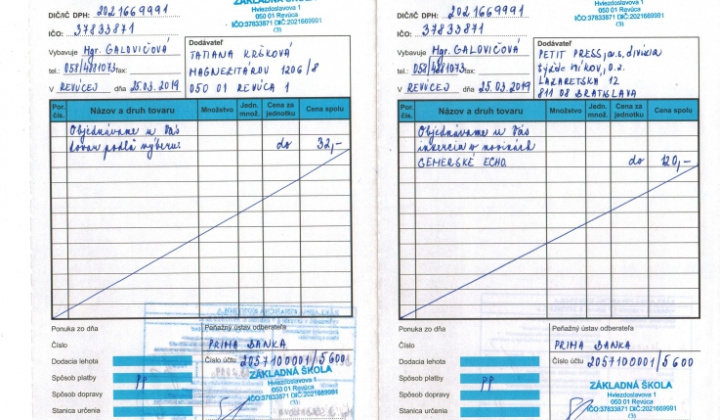 ZÁKLADNÁ ŠKOLA
Hviezdoslavova 1
050 01 Revúca
IČO:37833871 DIČ:2021669991
(3)
DIČ/IČ DPH: 2021669991
IČO: 37833871
Vybavuje Mgr. GALOVIČOVÁ
tel.: 058/4881073 fax:
V REVÚCEJ dňa 25.03.2019
Dodávateľ
TATIANA KRŠKOVÁ
MAGNEZITÁROV 1206/8
050 01 REVÚCA 1
Por. čís. Názov a druh tovaru Množstvo Jedn. množ. Cena za jednotku Cena spolu
Objednávame u Vás
tovar podľa výberu: do 32,-
Ponuka zo dňa
Číslo
Dodacia lehota
Spôsob platby PP
Spôsob dopravy
Stanica určenia
Peňažný ústav odberateľa
PRIMA BANKA
Číslo účtu 2057100001/5600
ZÁKLADNÁ ŠKOLA
Hviezdoslavova 1
050 01 Revúca
IČO:37833871 DIČ:2021669991
(3)
Hviezdoslavova 1
050 01 Revúca
IČO:37833871 DIČ:2021669991
(3)
DIČ/IČ DPH: 2021669991
IČO: 37833871
Vybavuje Mgr. GALOVIČOVÁ
tel.: 058/4881073 fax:
V REVÚCEJ dňa 25.03.2019
Dodávateľ
PETIT PRESS, a.s., divízia
týžd. MÍKOV, o.z.
LAZARETSKÁ 12
811 08 BRATISLAVA
Por. čís. Názov a druh tovaru Množstvo Jedn. množ. Cena za jednotku Cena spolu
Objednávame u Vás
inzerciu v novinách
GEMERSKÉ ECHO. do 120,-
Ponuka zo dňa
Číslo
Dodacia lehota
Spôsob platby PP
Spôsob dopravy
Stanica určenia
Peňažný ústav odberateľa
PRIMA BANKA
Číslo účtu 2057100001/5600
ZÁKLADNÁ ŠKOLA
Hviezdoslavova 1
050 01 Revúca
IČO:37833871 DIČ:2021669991
(3)